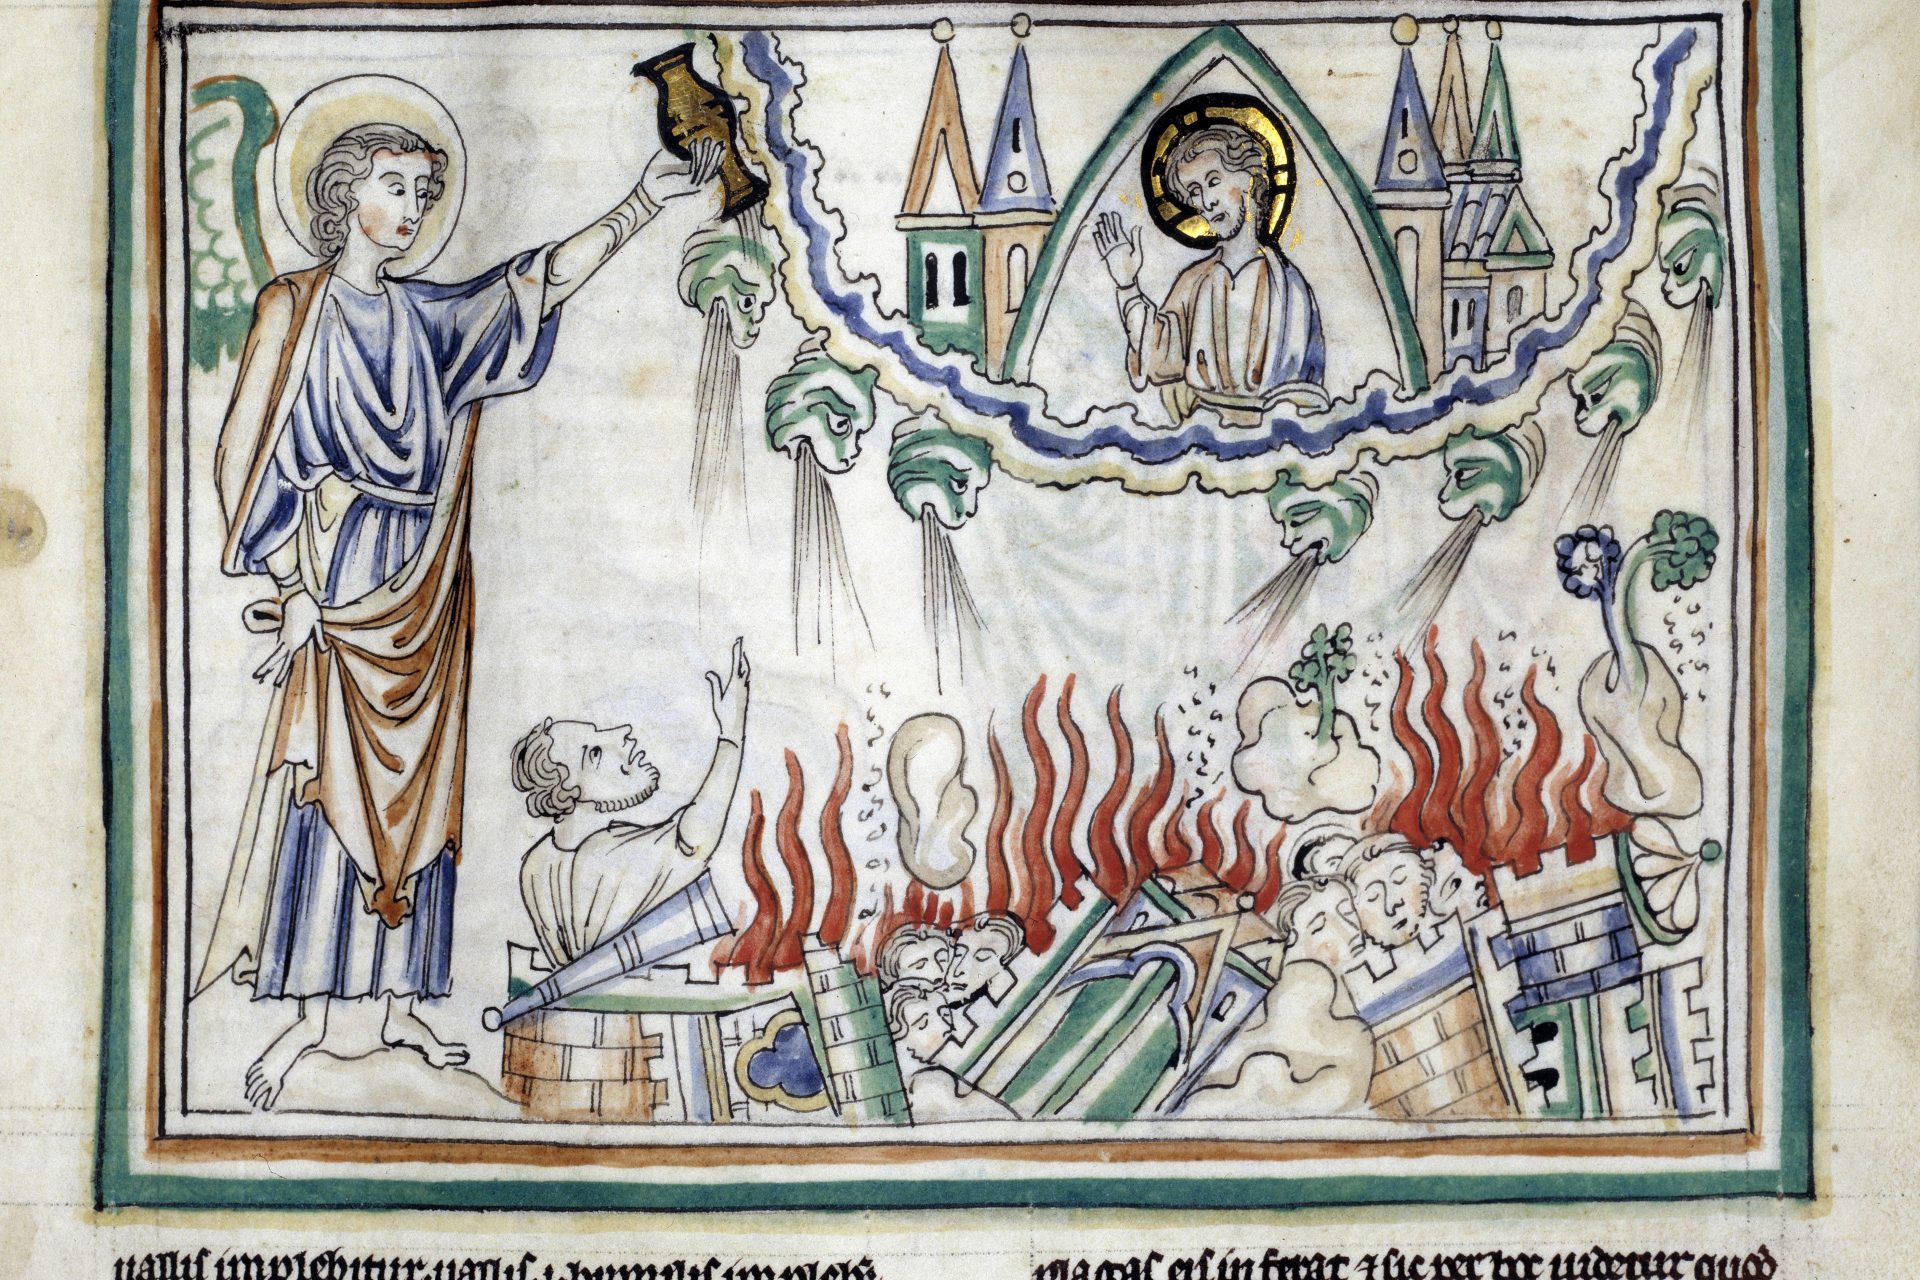 uallis implebitur. uallis .i. humilis implebit̉
plagas eis inferat ⁊ sic per hoc uidetur quod